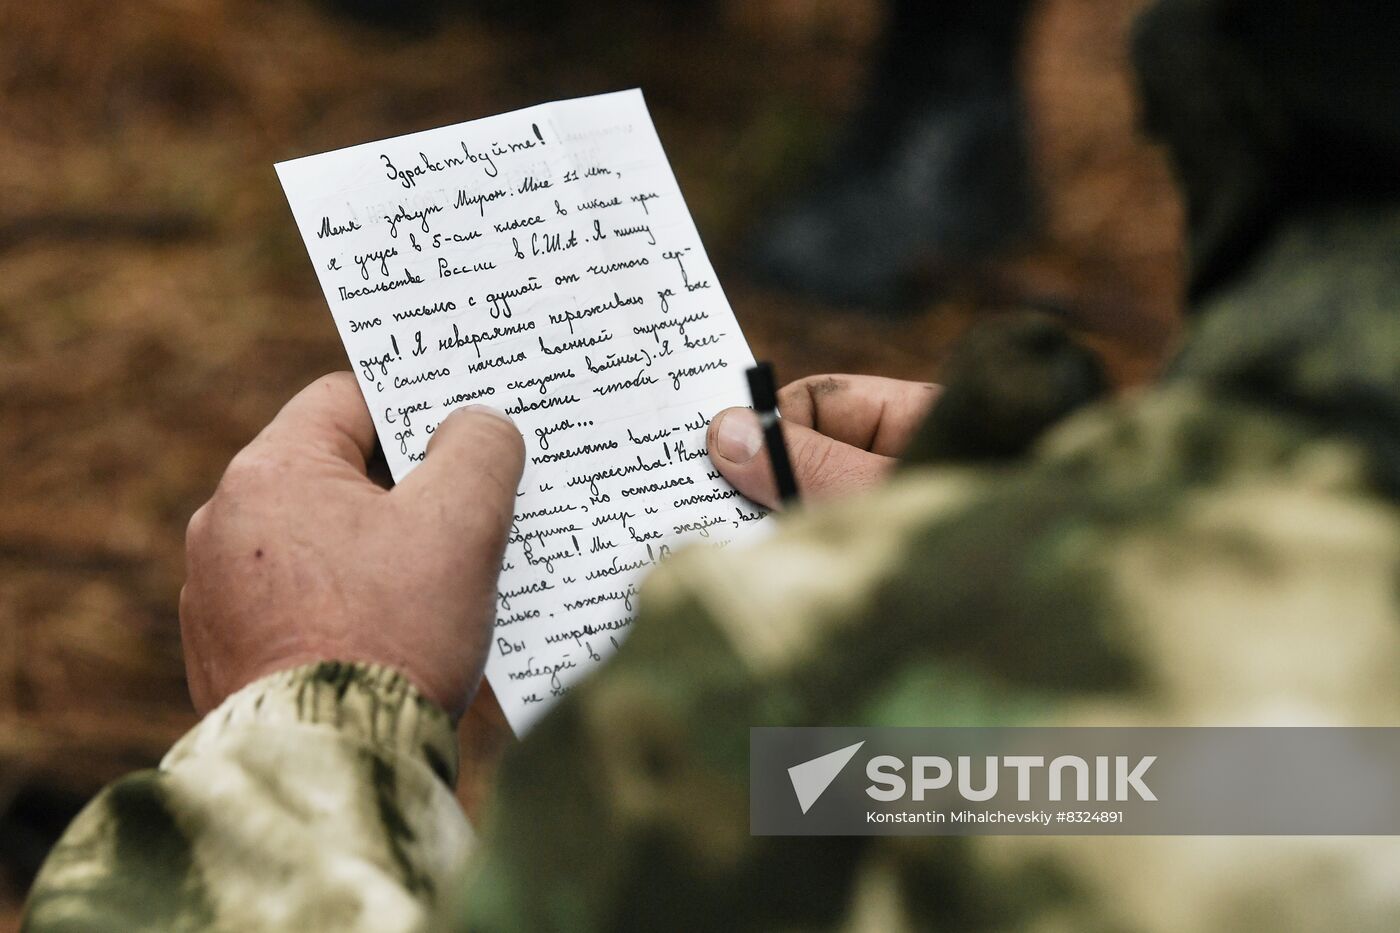 Здравствуйте!
Меня зовут Мирон. Мне 11 лет,
я учусь в 5-ом классе в школе при
Посольстве России в С.Ш.А. Я пишу
это письмо с душой от чистого сер-
дца! Я невероятно переживаю за вас
с самого начала военной операции
(уже можно сказать войны). Я всег-
да новости чтобы знать
дела...
пожелать вам
и мужества!
стали, но осталось
мир и
й Родине! Мы вас ждём,
димся и любим!
олько, пожалуй
Вы
победой в
не
SPUTNIK
Konstantin Mihalchevskiy #8324891